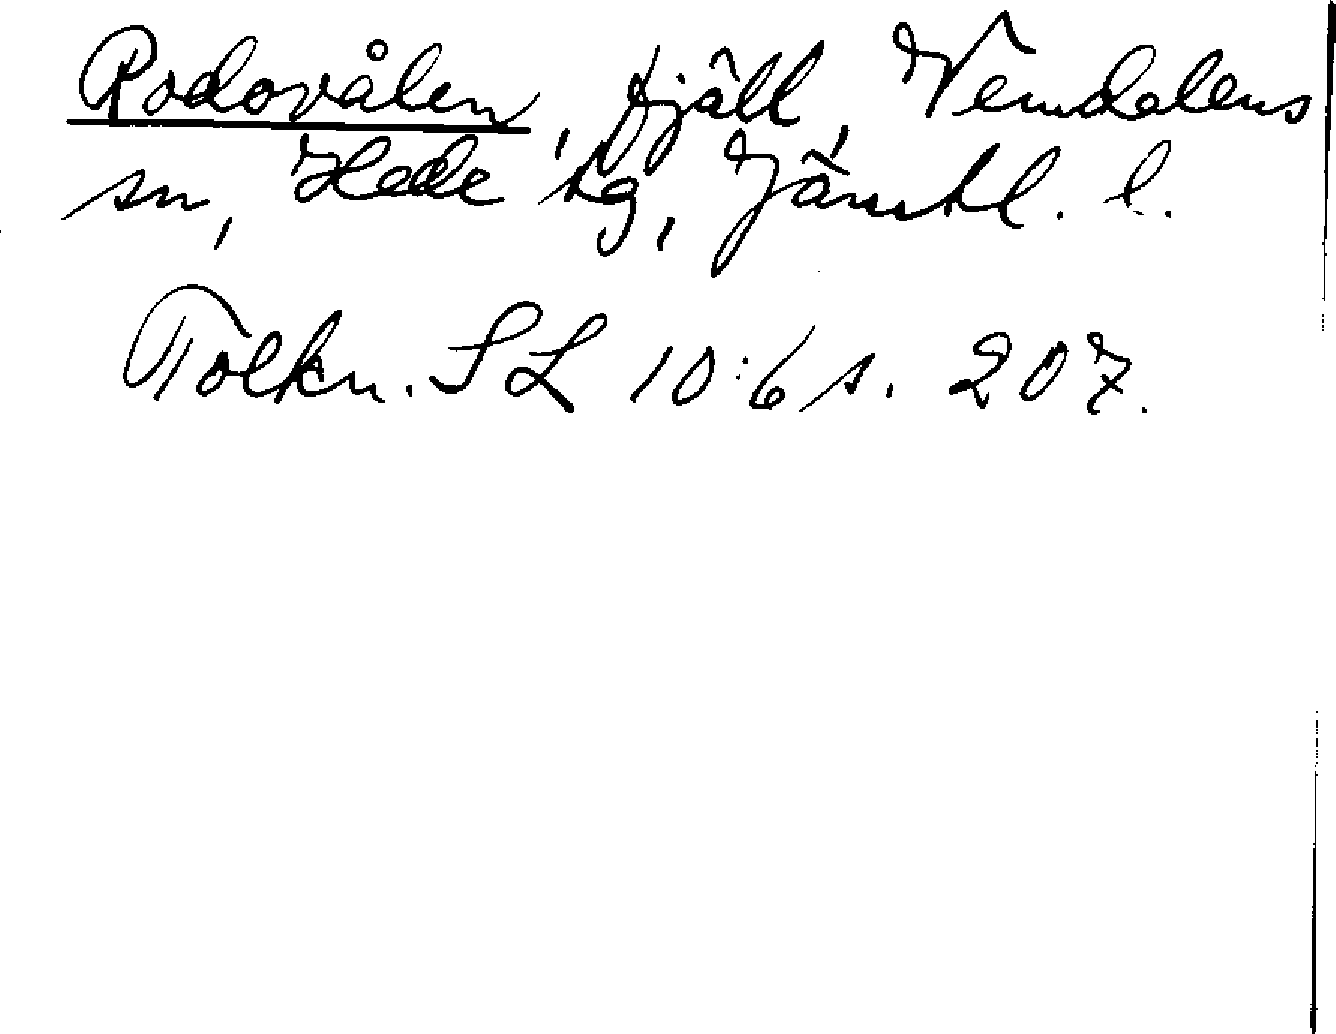 Rodovålen, fjäll, Vemdalens
sn, Hede tg, Jämtl. l.
Tolkn. SL 10:6 s. 207.